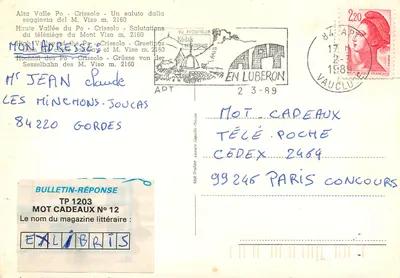 Alta Valle Po - Crissolo - Un saluto dalla
seggiovia del M. Viso m. 2160
Haute Vallée du Po - Crissolo - Salutations
du télésiège du Mont Viso m. 2160
- Crissolo - Greetings
M. Viso m. 2160
- Crissolo - Grüsse von der
Sesselbahn des M. Viso m. 2160
MON ADRESSE:
Mr JEAN Claude
LES MINCHONS-JOUCAS
84220 GORDES
APT
EN LUBERON
APT
2 3-89
84 APT
17 H
2-3
1989
VAUCLUSE
2,20
MOT CADEAUX
TÉLÉ POCHE
CEDEX 2464
99246 PARIS CONCOURS
BULLETIN-RÉPONSE
TP 1203
MOT CADEAUX N° 12
Le nom du magazine littéraire :
EXLIBRIS